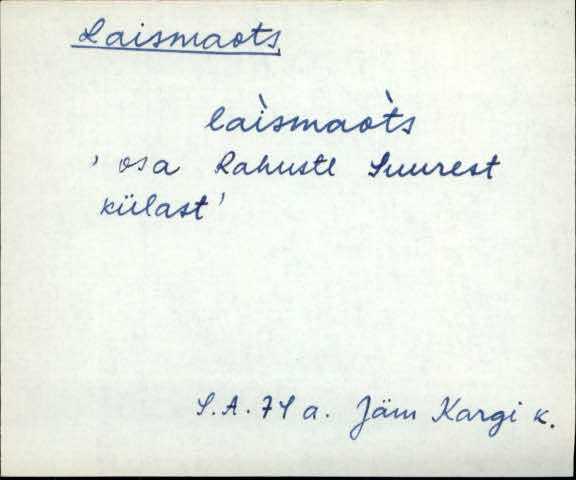 Laismaots
laìsmaòts
' osa Rahuste Suurest
külast'
S.A. 74 a. Jäm Kargi k.